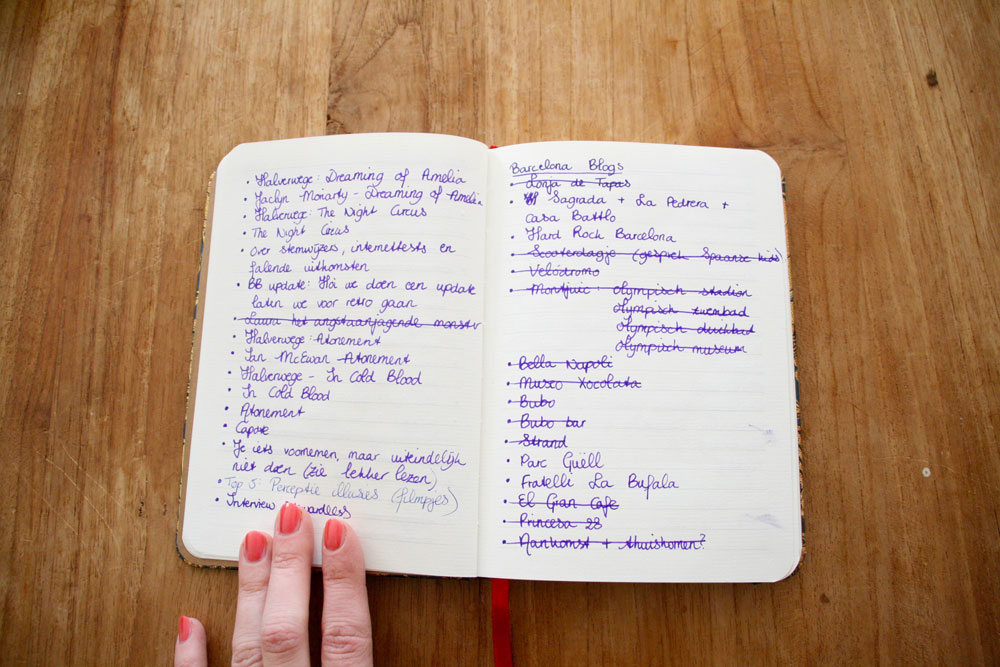 • Halverwege: Dreaming of Amelia
• Jaclyn Moriarty - Dreaming of Amelia
• Halverwege: The Night Circus
• The Night Circus
• Over stemwijzers, internettests en
falende uitkomsten
• BB update: Há we doen een update
laten we voor retro gaan
• Laura het angstaanjagende monster
• Halverwege: Atonement
• Ian McEwan - Atonement
• Halverwege - In Cold Blood
• In Cold Blood
• Atonement
• Capote
• Je iets voornemen, maar uiteindelijk
niet doen (zie lekker lezen)
• Top 5: Perceptie illusies (filmpjes)
• Interview
Barcelona Blogs
• Lonja de Tapas
• Sagrada + La Pedrera +
Casa Battlo
• Hard Rock Barcelona
• Scooterdagje (gesprek Spaanse kids)
• Velódromo
• Montjuic: Olympisch stadion
Olympisch zwembad
Olympisch duikbad
Olympisch museum
• Bella Napoli
• Museo Xocolata
• Bubo
• Bubo bar
• Strand
• Parc Güell
• Fratelli La Bufala
• El Gran Cafe
• Princesa 23
• Aankomst + thuiskomen?